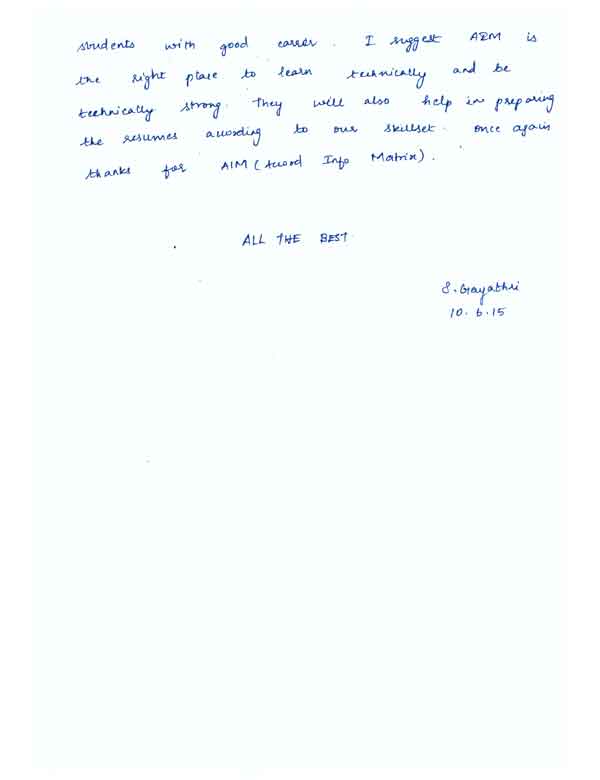 students with good career. I suggest AIM is
the right place to learn technically and be
technically strong. They will also help in preparing
the resumes according to our skillset. once again
thanks for AIM (Accord Info Matrix).
ALL THE BEST.
S. Gayathri
10.6.15